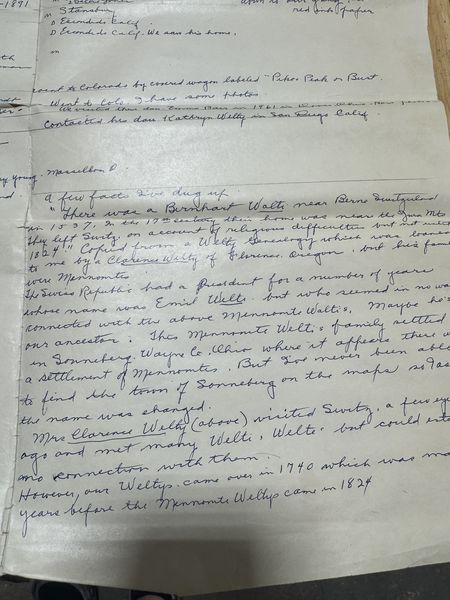 -1891
" Stansbury
D Escondido Calif
D Escondido Calif. We saw his home.
"
red ink paper
went to Colorado by covered wagon labeled "Pikes Peak or Bust.
Went to Colo. I have some photos
Contacted his dau Kathryn Welty in San Diego Calif.
y young. Massellon O.
A few facts I've dug up.
"There was a Bernhart Walti near Berne Switzerland
in 1537. In the 17th century their home was near the Jura Mts
They left Switz. on account of religious difficulties but not until
1824." Copied from a Welty Genealogy which was loaned
to me by a Clarence Welty of Florence, Oregon, but his family
were Mennonites
The Swiss Republic had a President for a number of years
whose name was Emil Welti but who seemed in no wa
connected with the above Mennonite Waltis. Maybe he's
our ancestor. This Mennonite Welti's family settled
in Sonneberg, Wayne Co. Ohio where it appears there w
a settlement of Mennonites. But I've never been able
to find the town of Sonneberg on the maps so
the name was changed.
Mrs Clarence Welty (above) visited Switz, a few ye
ago and met many Welti, Welte but could esta
no connection with them.
However, our Weltys came over in 1740 which was ma
years before the Mennonite Weltys came in 1824